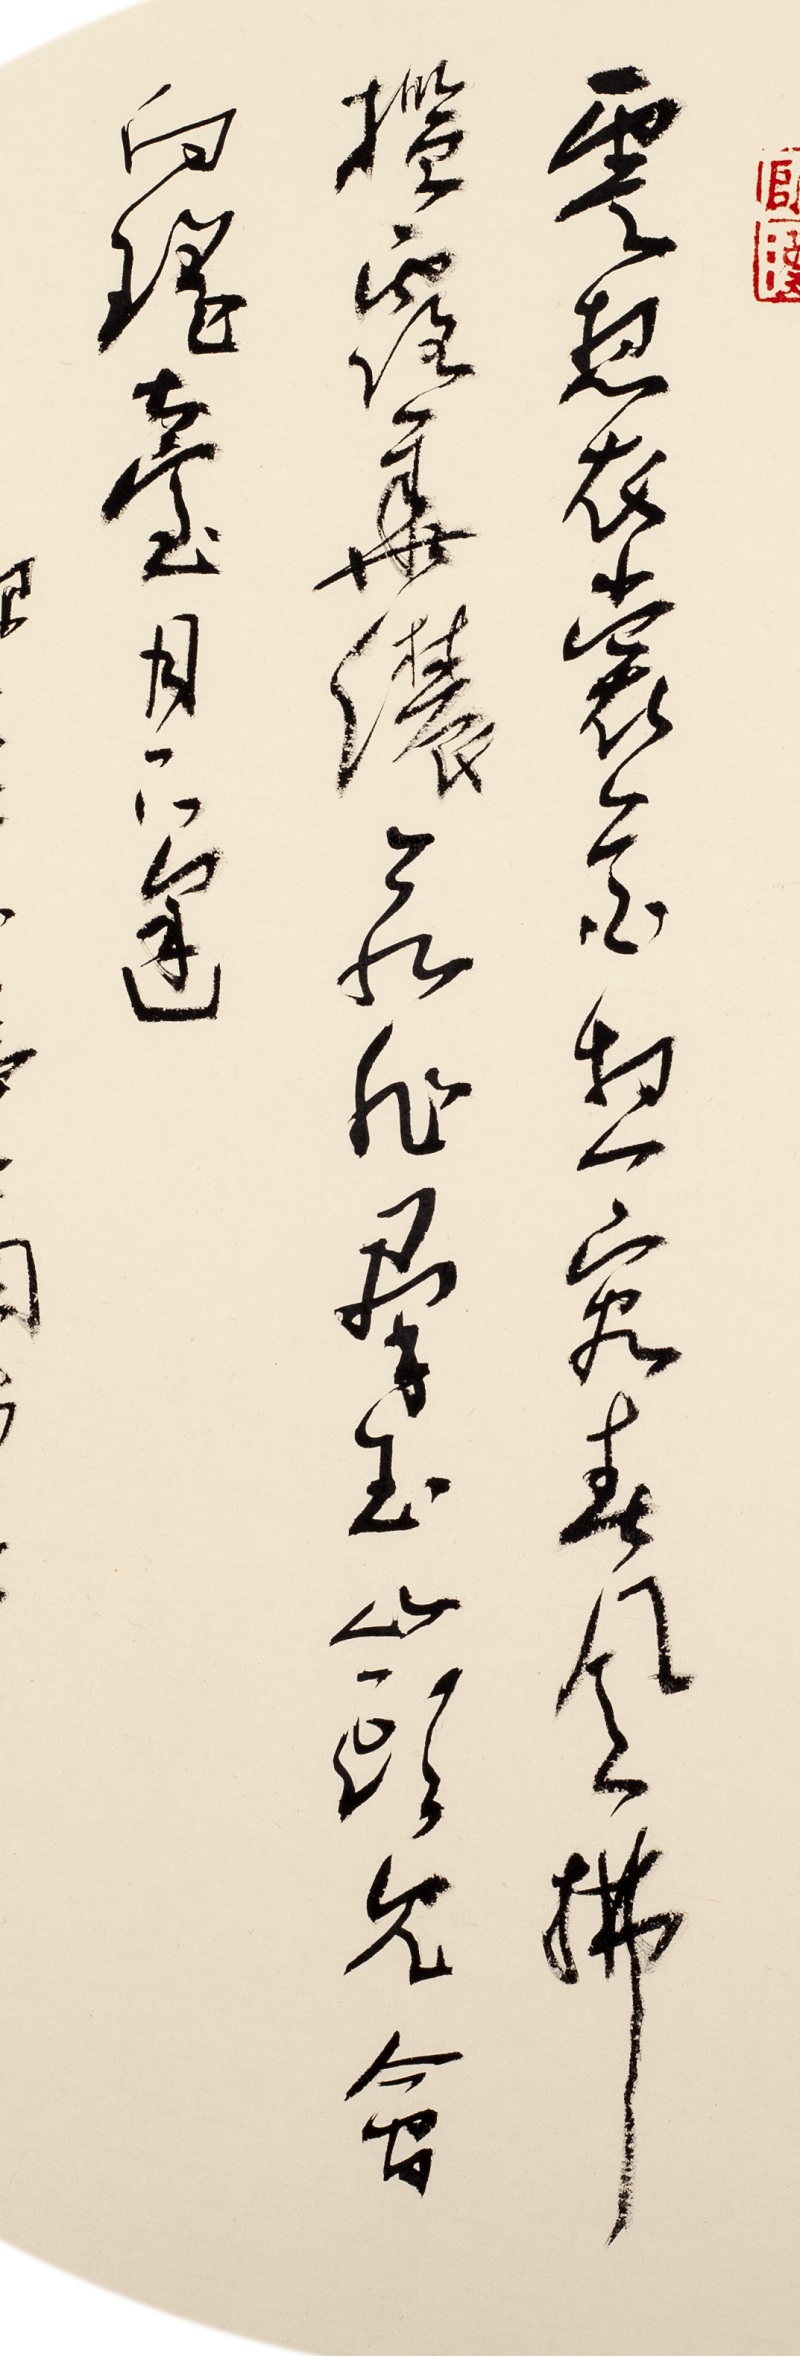 雲想衣裳花想容春風拂
檻露華濃若非羣玉山頭見會
向瑤臺月下逢